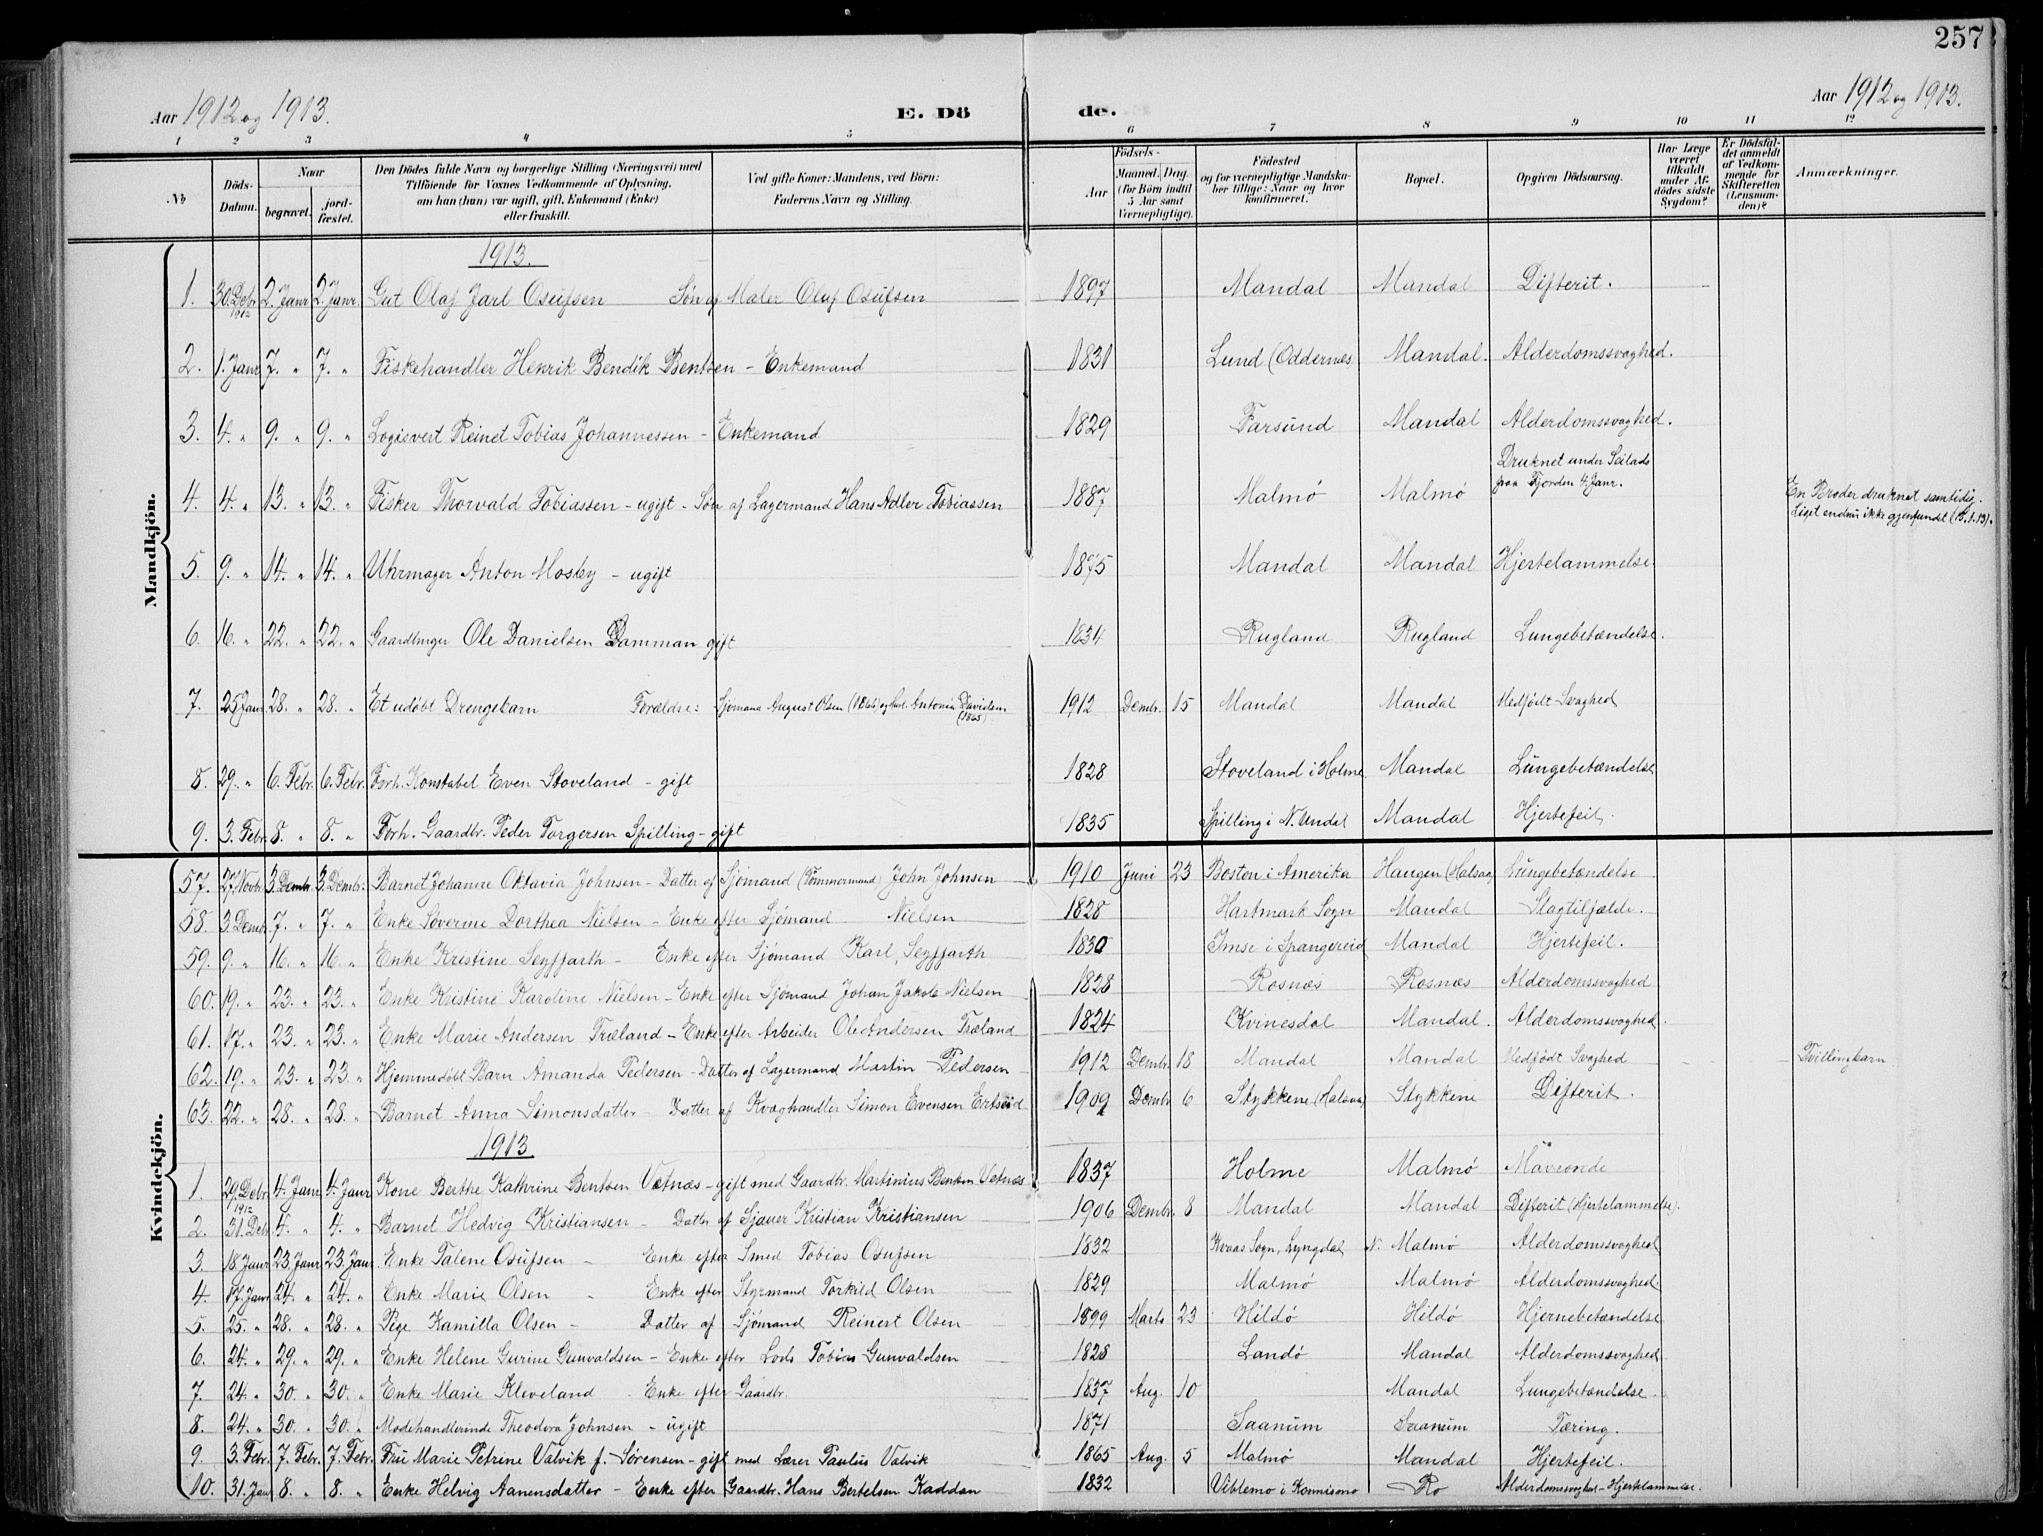 257
Aar 1912 og 1913. E. Dö de. Aar 1912 og 1913.
1 2 3 4 5 6 7 8 9 10 11 12
No Döds-Datum. Naar begravet. jord-fæstet. Den Dödes fulde Navn og borgerlige Stilling (Næringsvei) med Tilföiende for Voxnes Vedkommende af Oplysning, om han (hun) var ugift, gift, Enkemand (Enke) eller fraskilt. Ved gifte Koner: Mandens, ved Börn: Faderens Navn og Stilling. Födsels- Aar Maaned. Dag. (for Börn indtil 5 Aar samt Værnepligtige). Födested og for værnepligtige Mandska-ber tillige: Naar og hvor konfirmeret. Bopæl. Opgiven Dödsaarsag. Har Læge været tilkaldt under Af-dödes sidste Sygdom? Er Dödsfal-det anmeldt af Vedkom-mende for Skifteretten (Lensman-den)? Anmærkninger.
Mandkjön.
1913.
1. 30. Debr. 1912 2. Janr 2. Janr. Gut Olaf Jarl Osufsen Søn af Maler Oluf Osufsen 1897 Mandal Mandal Difterit.
2. 1. Janr 7. " 7. " Fiskehandler Henrik Bendik Bentsen - Enkemand 1831 Lund (Oddernes Mandal. Alderdomssvaghed.
3. 4. " 9. " 9. " Logisvert Reinet Tobias Johannessen - Enkemand 1829 Farsund Mandal Alderdomssvaghed.
4. 4. " 13. " 13. " Fisker Thorvald Tobiassen - ugift - Søn af Lagermand Hans Adler Tobiassen 1887 Malmö Malmö Druknet under Seilads paa Fjorden 4. Janr. En Broder druknet samtidig. Liget endnu ikke gjenfundet (13.1.13).
5. 9. " 14. " 14. " Uhrmager Anton Mosby - ugift Mandal Mandal Hjertelammelse.
6. 16. " 22. " 22. " Gaardbruger Ole Danielsen Damman gift 1834 Rugland Rugland Lungebetændelse.
7. 25 Janr 28. " 28. " Et udöbt Drengebarn Forældre: Sjömand August Olsen Antonia Davidsen (1865) 1912 Dembr. 15 Mandal Mandal Medfödt Svaghed
8. 29. " 6. Febr. 6. Febr. Forh. Konstabel Even Stoveland - gift 1828 Stoveland i Holme Mandal Lungebetændelse
9. 3. Febr. 8. " 8. " Forh. Gaardbr. Peder Torgersen Spilling - gift 1835 Spilling i N. Undal Mandal Hjertefeil.
Kvindekjön.
57. 27. Novbr. 3. Dembr. 3. Dembr. Barnet Johanne Oktavia Johnsen - Datter af Sjömand (Tömmermand) John Johnsen 1910 Juni 23 Boston i Amerika Haugen (Halsaa) Lungebetændelse
58. 3. Dembr. 7. " 7. " Enke Severine Dorthea Nielsen - Enke efter Sjömand Nielsen 1828 Hartmark Sogn Mandal Slagtilfælde.
59. 9. " 16. " 16. " Enke Kristine Seyffarth - Enke efter Sjömand Karl Seyffarth 1830 Imse i Spangereid Mandal Hjertefeil.
60. 19. " 23. " 23. " Enke Kristine Karoline Nielsen - Enke efter Sjömand Johan Jakob Nielsen 1828 Rosnæs Rosnæs Alderdomssvaghed
61. 17. " 23. " 23. " Enke Marie Andersen Træland - Enke efter Arbeider Ole Andersen Træland 1824 Kvinesdal Mandal. Alderdomssvaghed.
62. 19. " 23. " 23. " Hjemmedöbt Barn Amanda Pedersen - Datter af Lagermand Martin Pedersen 1912 Dembr. 18 Mandal Mandal Medfödt Svaghed Tvillingbarn
63. 22. " 28. " 28. " Barnet Anna Simonsdatter - Datter af Kvæghandler Simon Evensen Ertseid 1909 Dembr 6 Stykkene (Halsaa) Stykkene Difterit.
1913
1. 29. Debr. 1912 4. Janr 4. Janr Kone Berthe Kathrine Bentsen Vetnæs - gift med Gaardbr. Martinius Bentsen Vetnæs 1837 Holme Malmö Maveonde
2. 31. Debr 4. " 4. " Barnet Hedvig Kristiansen - Datter af Sjauer Kristian Kristiansen 1906 Dembr. 8 Mandal Mandal Difterit (Hjertelammelse).
3. 18. Janr 23. Janr 23. Janr. Enke Talene Osufsen - Enke efter Smed Tobias Osufsen 1832 Kvaas Sogn, Lyngdal N. Malmö Alderdomssvaghed
4. 17. Janr 24. " 24. " Enke Marie Olsen - Enke efter Styrmand Torkild Olsen 1829 Malmö Malmö Alderdomssvaghed
5. 25. " 28. " 28. " Pige Kamilla Olsen - Datter af Sjömand Reinert Olsen 1899 Marts 23 Hildö Hildö Hjernebetændelse
6. 24. " 29. " 29. " Enke Helene Gurine Gunvaldsen - Enke efter Lods Tobias Gunvaldsen 1828 Landö Mandal Alderdomssvaghed
7. 24. " 30. " 30. " Enke Marie Kleveland - Enke efter Gaardbr. 1837 Aug. 10 Mandal Lungebetændelse.
8. 24. " 30. " 30. " Modehandlerinde Theodora Johnsen - ugift 1871 Saanum Saanum Tæring.
9. 3. Febr. 7. Febr. 7. Febr. Fru Marie Petrine Valvik f. Sørensen - gift med Lærer Paulus Valvik 1865 Aug. 5 Malmö Mandal Hjertefeil.
10. 31. Jan 8. " 8. " Enke Helvig Aanensdatter - Enke efter Gaardbr. Hans Bertelsen Kaddan 1832 Viblemo i Konnismo Ro Alderdomssvaghed - Hjertelammelse.